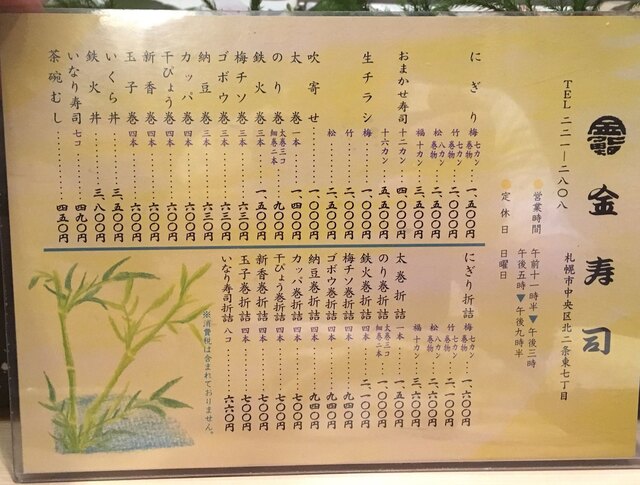 金寿司
TEL 二二一―二八〇八
札幌市中央区北二条東七丁目
営業時間 午前十一時半▼午後三時
午後五時▼午後九時半
定休日 日曜日
にぎり 梅 七カン 巻物 一、五〇〇円
竹 七カン 巻物 二、〇〇〇円
松 八カン 巻物 二、五〇〇円
福 十カン 三、五〇〇円
おまかせ寿司 十二カン 四、〇〇〇円
十六カン 五、五〇〇円
生チラシ 梅 一、五〇〇円
竹 二、〇〇〇円
松 二、五〇〇円
吹寄せ 一、〇〇〇円
太巻 一本 一、四〇〇円
のり巻 太巻三コ 細巻二本 九〇〇円
鉄火巻 三本 一、五〇〇円
梅チソ巻 三本 六三〇円
ゴボウ巻 三本 六三〇円
納豆巻 三本 六三〇円
カッパ巻 四本 六〇〇円
干ぴょう巻 四本 六〇〇円
新香巻 四本 六〇〇円
玉子巻 四本 六〇〇円
いくら丼 三、五〇〇円
鉄火丼 三、八〇〇円
いなり寿司 七コ 四九〇円
茶碗むし 四五〇円
にぎり折詰 梅 七カン 巻物 一、六〇〇円
竹 七カン 巻物 二、一〇〇円
松 八カン 巻物 二、六〇〇円
福 十カン 三、六〇〇円
太巻折詰 一本 一、五〇〇円
のり巻折詰 太巻三コ 細巻二本 一、〇〇〇円
鉄火巻折詰 四本 二、一〇〇円
梅チソ巻折詰 四本 九四〇円
ゴボウ巻折詰 四本 九四〇円
納豆巻折詰 四本 九四〇円
カッパ巻折詰 四本 七〇〇円
干ぴょう巻折詰 四本 七〇〇円
新香巻折詰 四本 七〇〇円
玉子巻折詰 四本 七〇〇円
いなり寿司折詰 八コ 六六〇円
※消費税は含まれておりません。